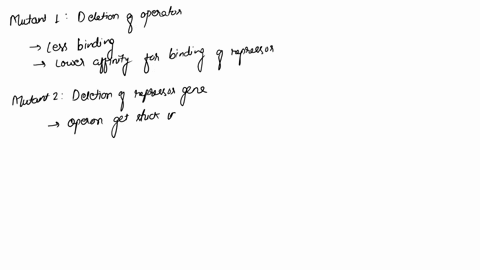 Mutant 1: Deletion of operator
→ Less binding
→ Lower affinity for binding of repressor
Mutant 2: Deletion of repressor gene
→ operon get stuck